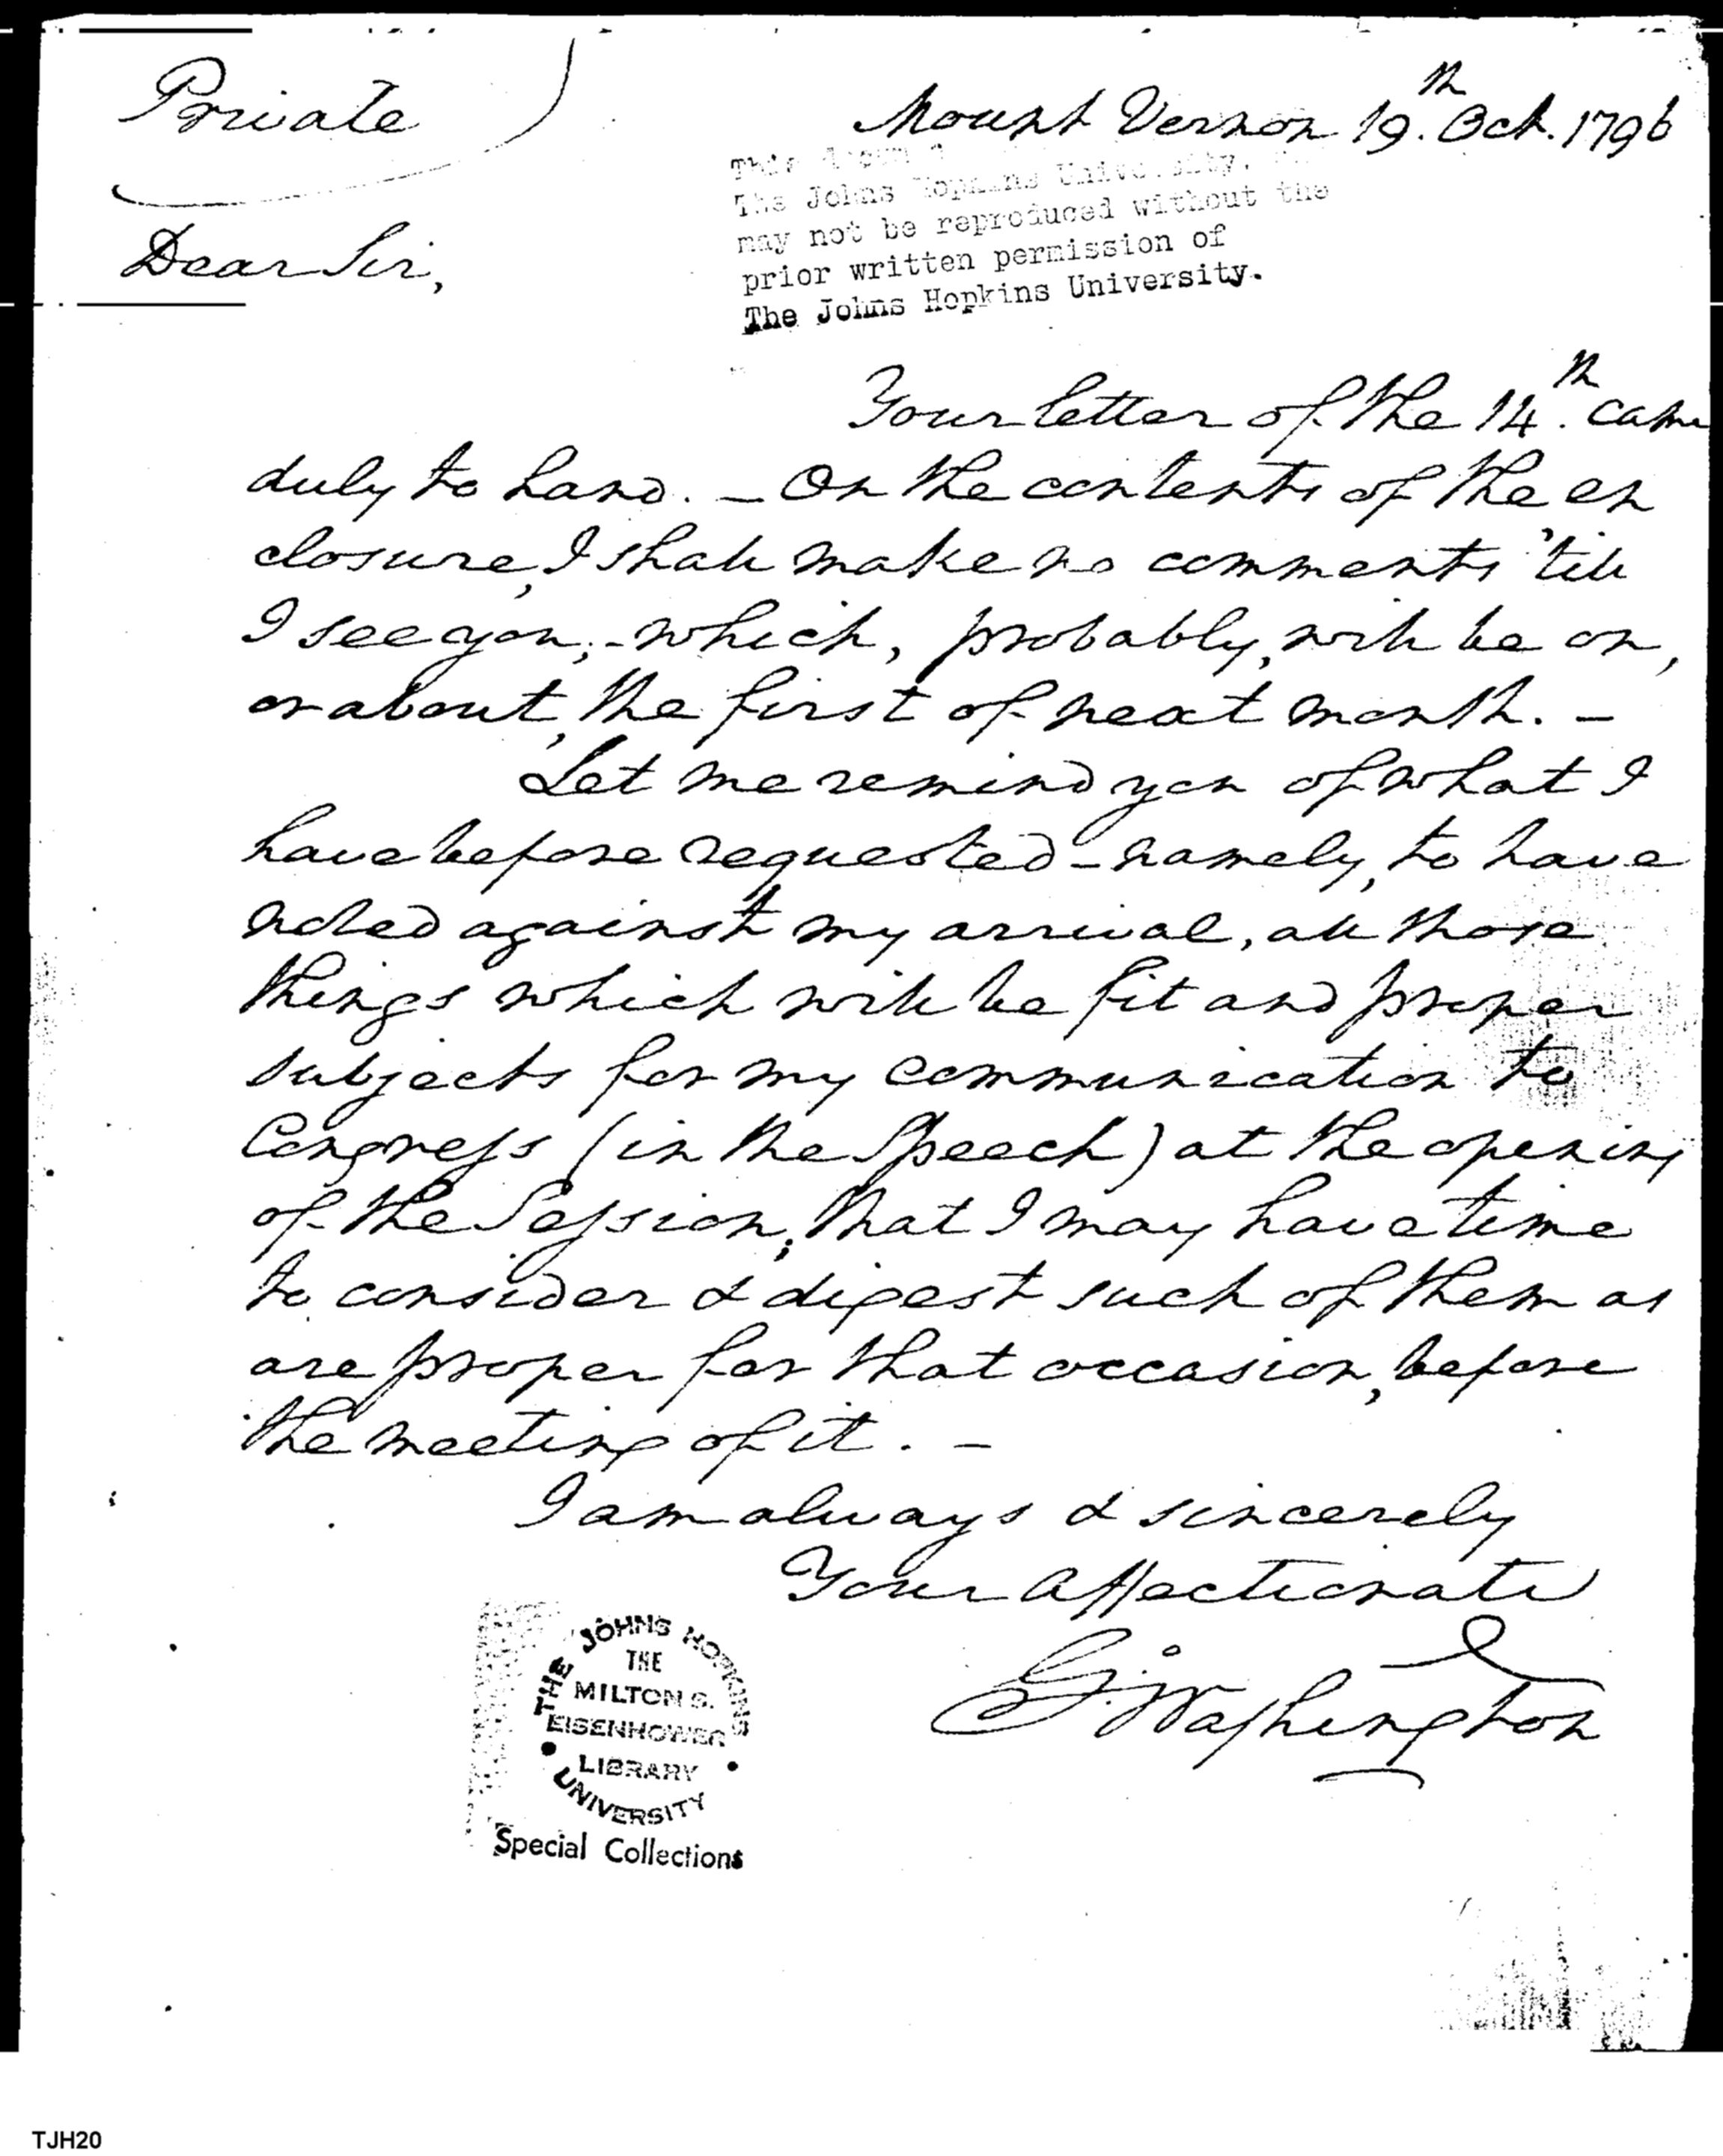 Private
Mount Vernon 19.th Oct. 1796
This docum
The Johns Hopkins University.
may not be reproduced without the
prior written permission of
The Johns Hopkins University.
Dear Sir,
Your letter of the 14.th came
duly to hand. – On the contents of the en
closure, I shall make no comments 'till
I see you; - which, probably, will be on,
or about, the first of next month. –
Let me remind you of what I
have before requested – namely, to have
noted against my arrival, all those
things which will be fit and proper
subjects for my communication to
Congress (in the Speech) at the opening
of the Session; that I may have time
to consider & digest such of them as
are proper for that occasion, before
the meeting of it. –
I am always & sincerely
Your Affectionate
G:Washington
THE JOHNS HOPKINS UNIVERSITY
THE
MILTON S.
EISENHOWER
LIBRARY
Special Collections
TJH20